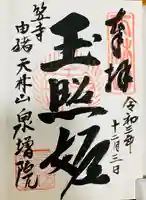 奉拝
令和三年
十二月三日
玉照姫
笠寺
由緒
天林山
泉増院